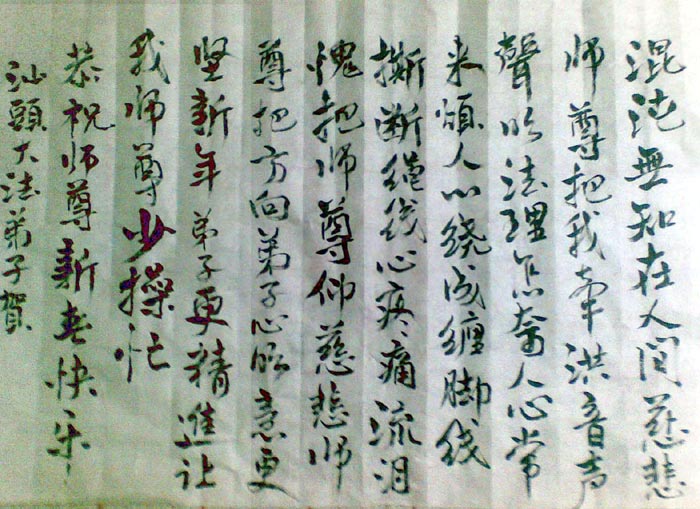 混沌無知在人间慈悲
师尊把我牵洪音声
聲明法理怎奈人心常
来烦人心绕成缠脚线
撕断缠线心疼痛流泪
愧把师尊仰慈悲师
尊把方向弟子心明意更
坚新年弟子更精進让
我师尊少操忙
恭祝师尊新春快乐
汕頭大法弟子賀